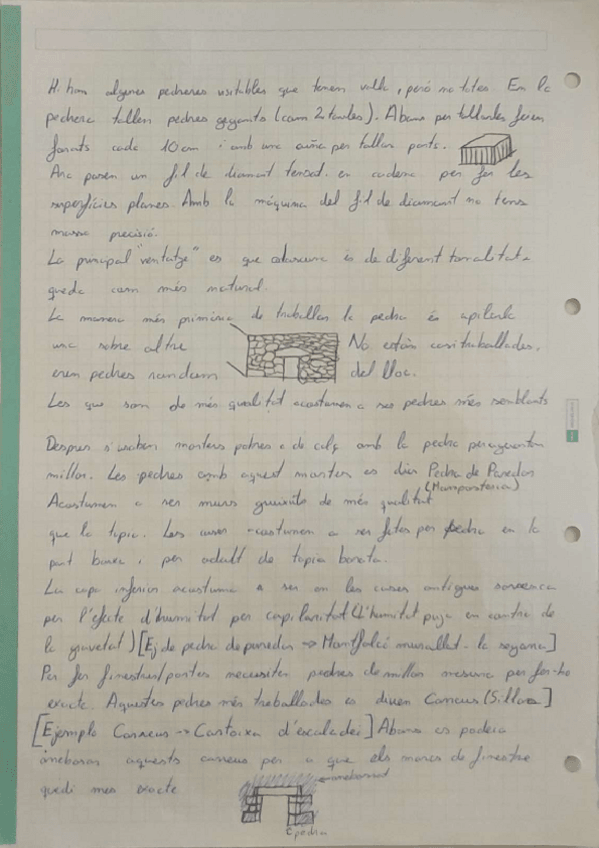 Hi han algunes pedreres visitables que tenen valla, però no totes. En la
pedrera tallen pedres gegants (com 2 taules). Abans per tallarles feien
forats cada 10 cm i amb una cuña per tallar parts.
Ara posen un fil de diamant tensat en cadena per fer les
superfícies planes. Amb la màquina del fil de diamant no tens
massa precisió.
La principal "ventatge" es que cadascuna és de diferent tonalitat
queda com més natural.
La manera més primària de treballar la pedra és apilarla
una sobre altre No están casi treballades,
eren pedres random del lloc.
Les que son de més qualitat acostumen a ser pedres més semblants
Despres s'usaben morters pobres o de calç amb la pedra per aguantar
millor. Les pedres amb aquest morter es diu Pedra de Paredar
(Mamposteria)
Acostumen a ser murs gruixuts de més qualitat
que la tapia. Les cases acostumen a ser fetes per pedra en la
part baixa i per adalt de tapia barata.
La capa inferior acostuma a ser en les cases antigues
per l'efecte d'humitat per capilaritat (L'humitat puja en contra de
la gravetat) [Ej de pedra de paredar → Montfalcó murallat - la segarra]
Per fer finestres/portes necesites pedres de millor mesura per fer-ho
exacte. Aquestes pedres més treballades es diuen Carreus (Sillares]
[Ejemplo Carreus → Cartoixa d'escaladei] Abans es podria
arrebosar aquests carreus per a que els marcs de finestre
quedi mes exacte
arrebossat
pedra